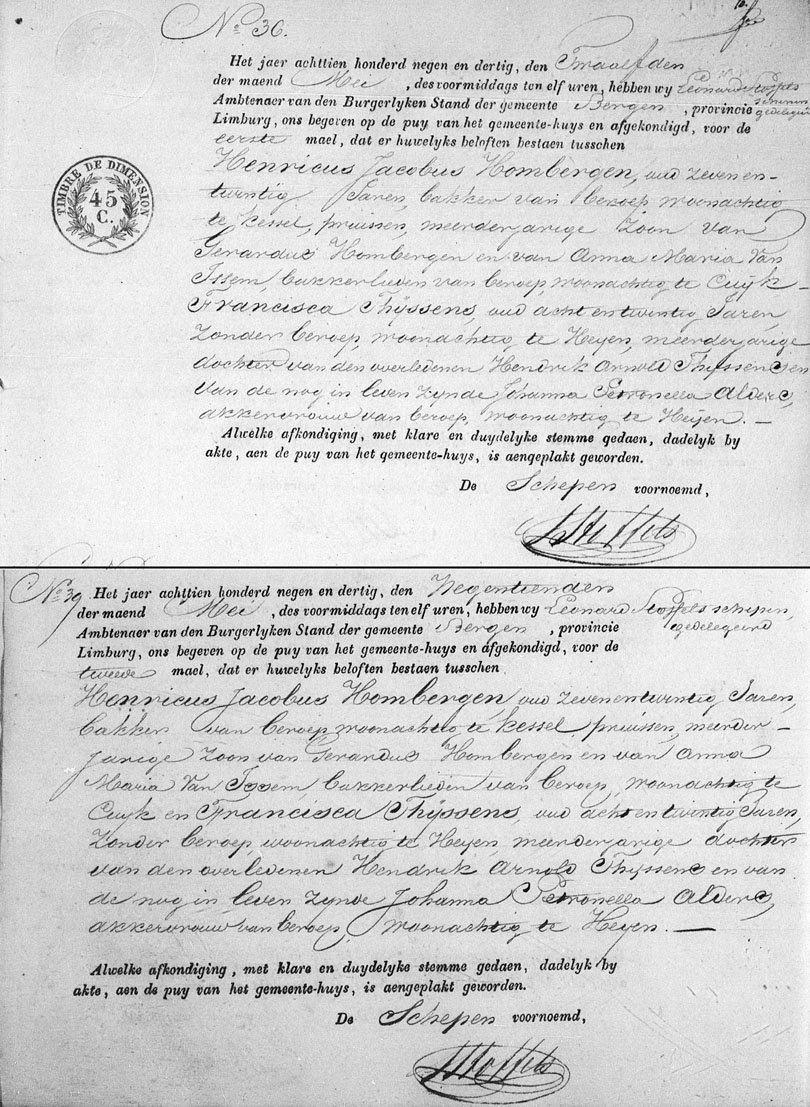 No 36.
Het jaer achttien honderd negen en dertig, den Twaalfden
der maend Mei , des voormiddags ten elf uren, hebben wy Leonard Stoffels schepen
Ambtenaer van den Burgerlyken Stand der gemeente Bergen , provincie gedelegeerd
Limburg, ons begeven op de puy van het gemeente-huys en afgekondigd, voor de
eerste mael, dat er huwelyks beloften bestaen tusschen
Henricus Jacobus Hombergen, oud zevenen-
twintig Jaren, bakker van beroep, woonachtig
te Kessel, pruissen, meerderjarige zoon van
Gerardus Hombergen en van Anna Maria Van
Issem, bakkerlieden van beroep, woonachtig te Cuijk -
Francisca Thijssens, oud acht entwintig Jaren,
zonder beroep, woonachtig te Heyen, meerderjarige
dochter van den overledenen Hendrik Arnold Thijssens en
van de nog in leven zynde Johanna Petronella Alders,
akkervrouw van beroep, woonachtig te Heijen. —
Alwelke afkondiging, met klare en duydelyke stemme gedaen, dadelyk by
akte, aen de puy van het gemeente-huys, is aengeplakt geworden.
De Schepen voornoemd,
LStoffels
TIMBRE DE DIMENSION
45
C.
No 39
Het jaer achttien honderd negen en dertig, den Negentienden
der maend Mei , des voormiddags ten elf uren, hebben wy Leonard Stoffels schepen,
Ambtenaer van den Burgerlyken Stand der gemeente Bergen , provincie gedelegeerd
Limburg, ons begeven op de puy van het gemeente-huys en afgekondigd, voor de
tweede mael, dat er huwelyks beloften bestaen tusschen
Henricus Jacobus Hombergen oud zevenentwintig Jaren,
bakker van beroep, woonachtig te Kessel pruissen, meerder-
jarige zoon van Gerardus Hombergen en van Anna
Maria Van Issem bakkerlieden van beroep, woonachtig te
Cuyk en Francisca Thijssens, oud acht en twintig Jaren,
zonder beroep, woonachtig te Heyen, meerderjarige dochter
van den overledenen Hendrik Arnold Thijssens en van
de nog in leven zynde Johanna Petronella Alders,
akkervrouw van beroep, woonachtig te Heyen. —
Alwelke afkondiging, met klare en duydelyke stemme gedaen, dadelyk by
akte, aen de puy van het gemeente-huys, is aengeplakt geworden.
De Schepen voornoemd,
LStoffels